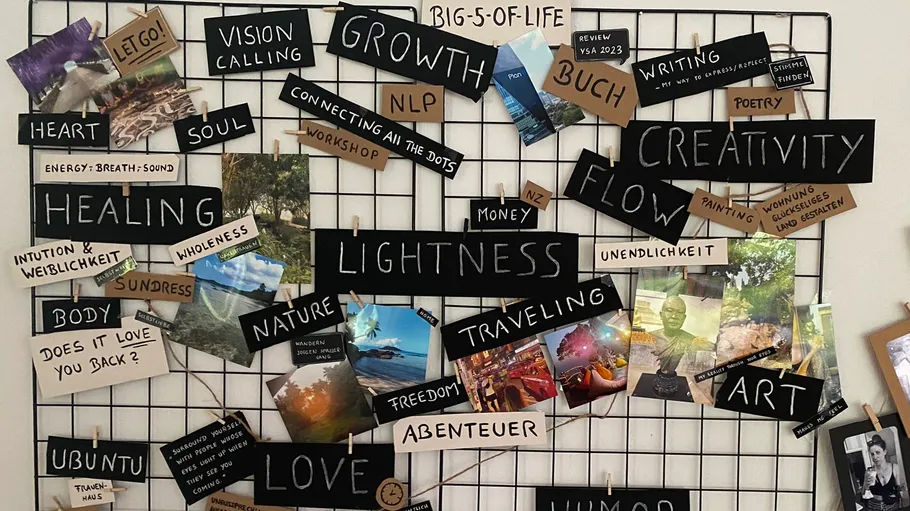 BIG-5-OF-LIFE
LET GO!
VISION
CALLING
GROWTH
Plan
REVIEW
YSA 2023
BUCH
WRITING
→ MY WAY TO EXPRESS/REFLECT
STIMME
FINDEN
POETRY
HEART
SOUL
CONNECTING All THE DOTS
NLP
WORKSHOP
CREATIVITY
FLOW
PAINTING
WOHNUNG
GLÜCKSELIGES
LAND GESTALTEN
ENERGY = BREATH = SOUND
HEALING
MONEY
NZ
INTUTION &
WEIBLICHKEIT
WHOLENESS
LIGHTNESS
UNENDLICHKEIT
SUNDRESS
BODY
NATURE
HOME
TRAVELING
DOES IT LOVE
YOU BACK?
WANDERN
JOGGEN
FREEDOM
MY REALITY THROUGH MY EYES
ART
MAKES ME FEEL
ABENTEUER
UBUNTU
SURROUND YOURSELF
WITH PEOPLE WHOSE
EYES LIGHT UP WHEN
THEY SEE YOU
COMING.
LOVE
FRAUEN-
HAUS
HUMOR